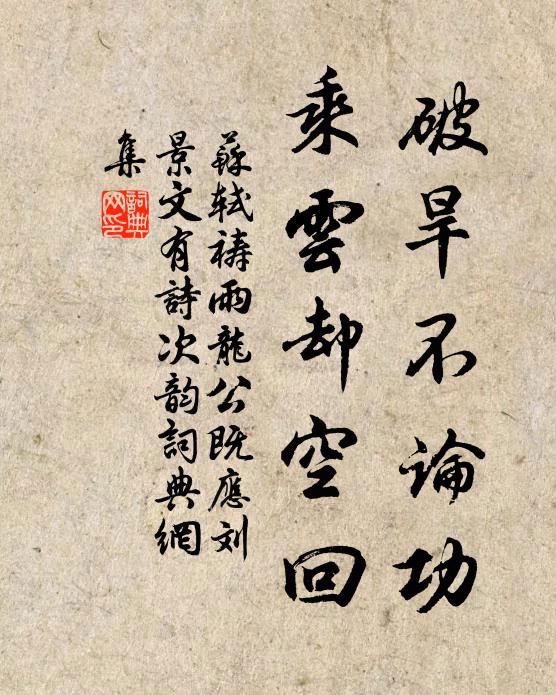 破旱不論功
乘雲却空回
蘇軾禱雨龍公既應刘
景文有詩次韵詞典網
集
詞典
网印